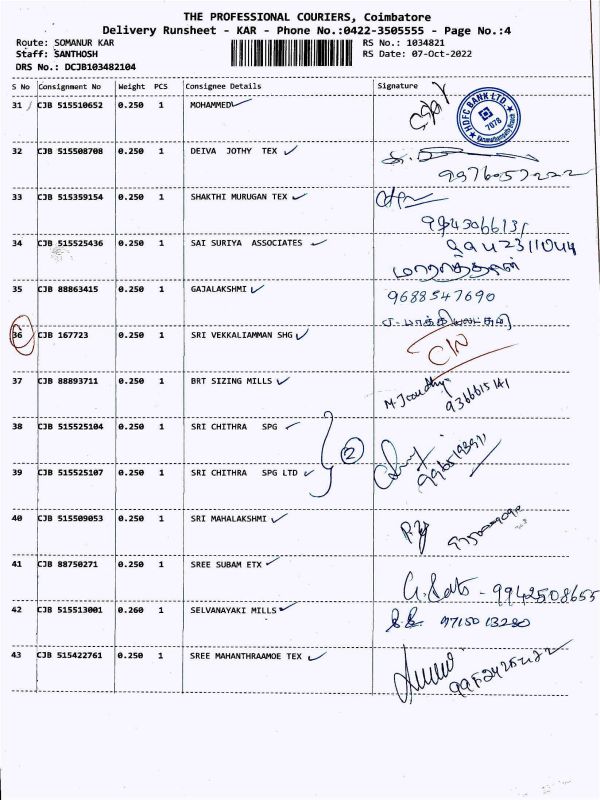 THE PROFESSIONAL COURIERS, Coimbatore
Delivery Runsheet - KAR - Phone No.:0422-3505555 - Page No.:4
Route: SOMANUR KAR RS No.: 1034821
Staff: SANTHOSH RS Date: 07-Oct-2022
DRS No.: DCJB103482104
S No Consignment No Weight PCS Consignee Details Signature
31 CJB 515510652 0.250 1 MOHAMMED
HDFC BANK LTD.
7078
32 CJB 515508708 0.250 1 DEIVA JOTHY TEX
9976057222
33 CJB 515359154 0.250 1 SHAKTHI MURUGAN TEX
34 CJB 515525436 0.250 1 SAI SURIYA ASSOCIATES
9442311044
35 CJB 88863415 0.250 1 GAJALAKSHMI
9688547690
36 CJB 167723 0.250 1 SRI VEKKALIAMMAN SHG
37 CJB 88893711 0.250 1 BRT SIZING MILLS
9366615141
38 CJB 515525104 0.250 1 SRI CHITHRA SPG
2
39 CJB 515525107 0.250 1 SRI CHITHRA SPG LTD
40 CJB 515509053 0.250 1 SRI MAHALAKSHMI
41 CJB 88750271 0.250 1 SREE SUBAM ETX
- 9942508655
42 CJB 515513001 0.260 1 SELVANAYAKI MILLS
9715013280
43 CJB 515422761 0.250 1 SREE MAHANTHRAAMOE TEX